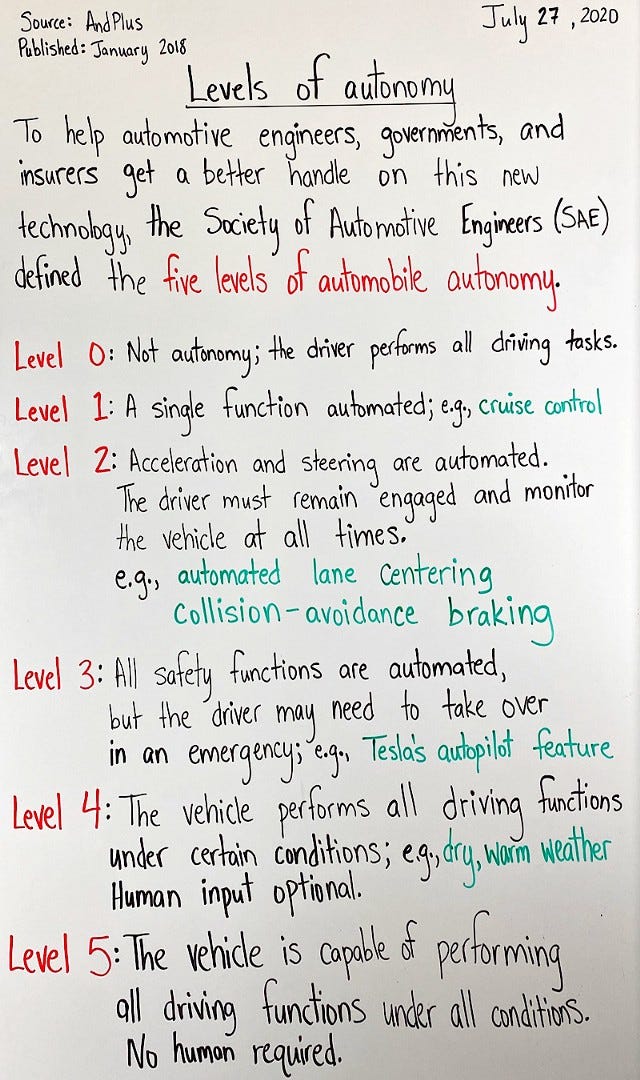 Source: AndPlus
Published: January 2018
July 27, 2020
Levels of autonomy
To help automotive engineers, governments, and
insurers get a better handle on this new
technology, the Society of Automotive Engineers (SAE)
defined the five levels of automobile autonomy.
Level 0: Not autonomy; the driver performs all driving tasks.
Level 1: A single function automated; e.g., cruise control
Level 2: Acceleration and steering are automated.
The driver must remain engaged and monitor
the vehicle at all times.
e.g., automated lane centering
collision-avoidance braking
Level 3: All safety functions are automated,
but the driver may need to take over
in an emergency; e.g., Tesla's autopilot feature
Level 4: The vehicle performs all driving functions
under certain conditions; e.g., dry, warm weather
Human input optional.
Level 5: The vehicle is capable of performing
all driving functions under all conditions.
No human required.